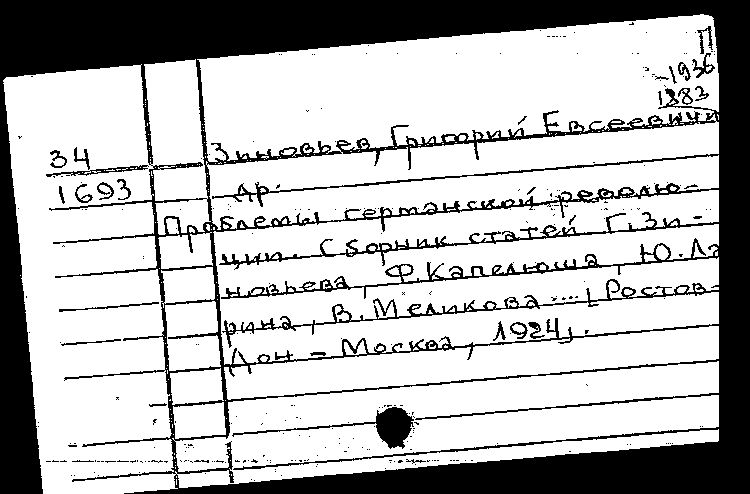 П
-1936
1883
34 Зиновьев, Григорий Евсеевич
1693 др.
Проблемы германской револю-
ции. Сборник статей Г. Зи-
новьева, Ф. Капелюша, Ю. Ла
рина, В. Меликова .... [Ростов-
Дон - Москва, 1924].